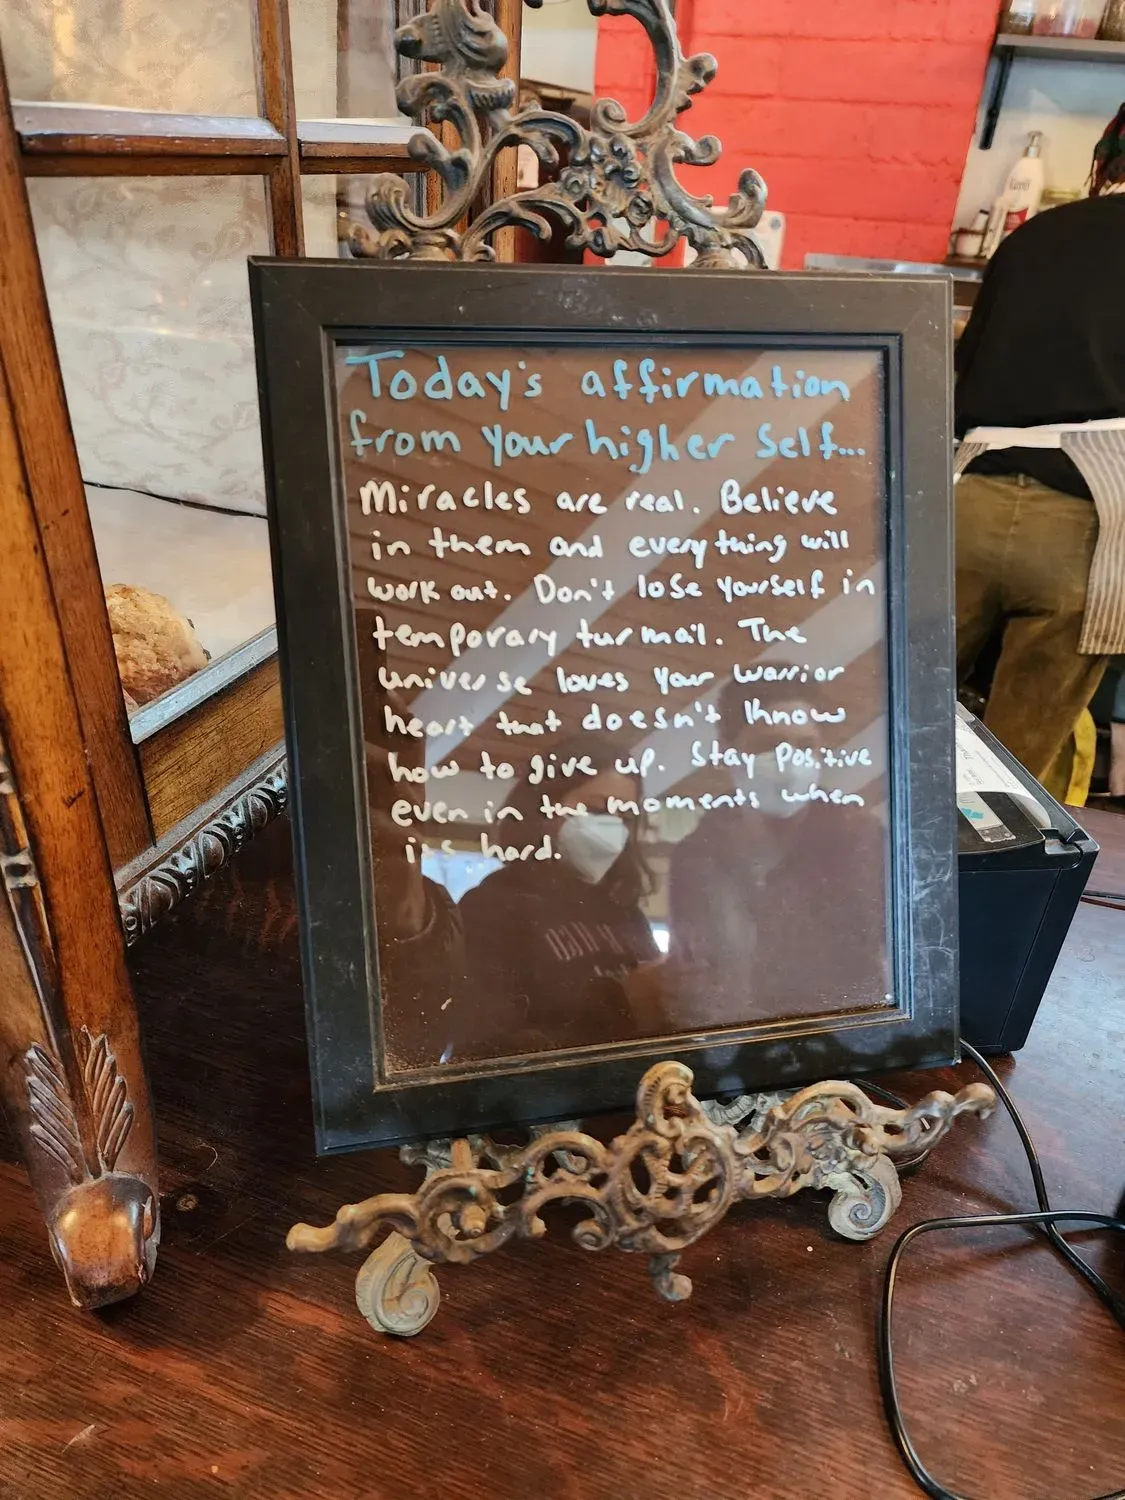 Today's affirmation
from your higher Self...
Miracles are real. Believe
in them and everything will
work out. Don't lose yourself in
temporary turmail. The
universe loves your warrior
heart that doesn't know
how to give up. Stay positive
even in the moments when
its hard.